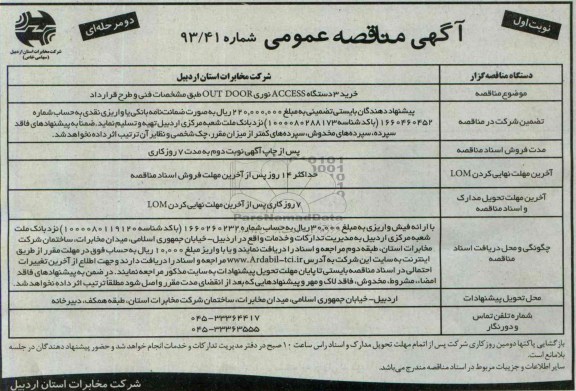 نوبت اول
آگهی مناقصه عمومی شماره ۹۳/۴۱
دو مرحله‌ای
شرکت مخابرات استان اردبیل
(سهامی خاص)
دستگاه مناقصه گزار
شرکت مخابرات استان اردبیل
موضوع مناقصه
خرید ۳ دستگاه ACCESS نوری OUT DOOR طبق مشخصات فنی و طرح قرارداد
تضمین شرکت در مناقصه
پیشنهاد دهندگان بایستی تضمینی به مبلغ ۲۲۰,۰۰۰,۰۰۰ ریال به صورت ضمانت‌نامه بانکی یا واریزی نقدی به حساب شماره
۱۶۶۰۴۶۰۴۵۲ (با کد شناسه ۱۰۰۰۰۰۸۰۲۸۸۱۷۳) نزد بانک ملت شعبه مرکزی اردبیل تهیه و تسلیم نماید. ضمنا به پیشنهادهای فاقد
سپرده، سپرده‌های مخدوش، سپرده‌های کمتر از میزان مقرر، چک شخصی و نظایر آن ترتیب اثر داده نخواهد شد.
مدت فروش اسناد مناقصه
پس از چاپ آگهی نوبت دوم به مدت ۷ روز کاری
آخرین مهلت نهایی کردن LOM
حداکثر ۱۴ روز پس از آخرین مهلت فروش اسناد مناقصه
آخرین مهلت تحویل مدارک
و اسناد مناقصه
۷ روز کاری پس از آخرین مهلت نهایی کردن LOM
ParsNamadData
چگونگی و محل دریافت اسناد
مناقصه
با ارائه فیش واریزی به مبلغ ۳۰۰,۰۰۰ ریال به حساب شماره ۱۶۶۰۲۶۰۲۳۲ (با کد شناسه ۱۰۰۰۰۰۸۰۱۱۹۱۲۰) نزد بانک ملت
شعبه مرکزی اردبیل به مدیریت تدارکات و خدمات واقع در اردبیل - خیابان جمهوری اسلامی، میدان مخابرات، ساختمان شرکت
مخابرات استان، طبقه دوم مراجعه و اسناد را دریافت نمایند و یا با واریز مبلغ ۱۰,۰۰۰ ریال به حساب فوق در مهلت مقرر از طریق
اینترنت به سایت این شرکت به آدرس www.Ardabil-tci.ir مراجعه و اسناد را دریافت دارند و جهت اطلاع از آخرین تغییرات
احتمالی در اسناد مناقصه بایستی تا پایان مهلت تحویل پیشنهادات به سایت مذکور مراجعه نمایند. در ضمن به پیشنهادهای فاقد
امضاء، مشروط، مخدوش، فاقد لاک و مهر و پیشنهادهایی که بعد از انقضای مدت مقرر واصل شود مطلقا ترتیب اثر داده نخواهد شد.
محل تحویل پیشنهادات
اردبیل - خیابان جمهوری اسلامی، میدان مخابرات، ساختمان شرکت مخابرات استان، طبقه همکف، دبیرخانه
شماره تلفن تماس
و دورنگار
۰۴۵-۳۳۳۶۴۴۱۷
۰۴۵-۳۳۳۶۳۵۵۵
بازگشایی پاکتها دومین روز کاری شرکت پس از اتمام مهلت تحویل مدارک و اسناد راس ساعت ۱۰ صبح در دفتر مدیریت تدارکات و خدمات انجام خواهد شد و حضور پیشنهاد دهندگان در جلسه
بلامانع است.
سایر اطلاعات و جزییات مربوط در اسناد مناقصه مندرج می‌باشد.
شرکت مخابرات استان اردبیل